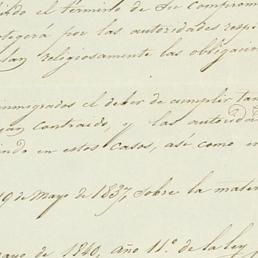 ido el término de su comprom
tegerá por las autoridades resp
lan religiosamente las obligacio
inmigrados el deber de cumplir tam
yan contraido, y las autorida
endo en estos casos, así como en
9 de Mayo de 1837, sobre la mater
ayo de 1840, año 11.º de la ley